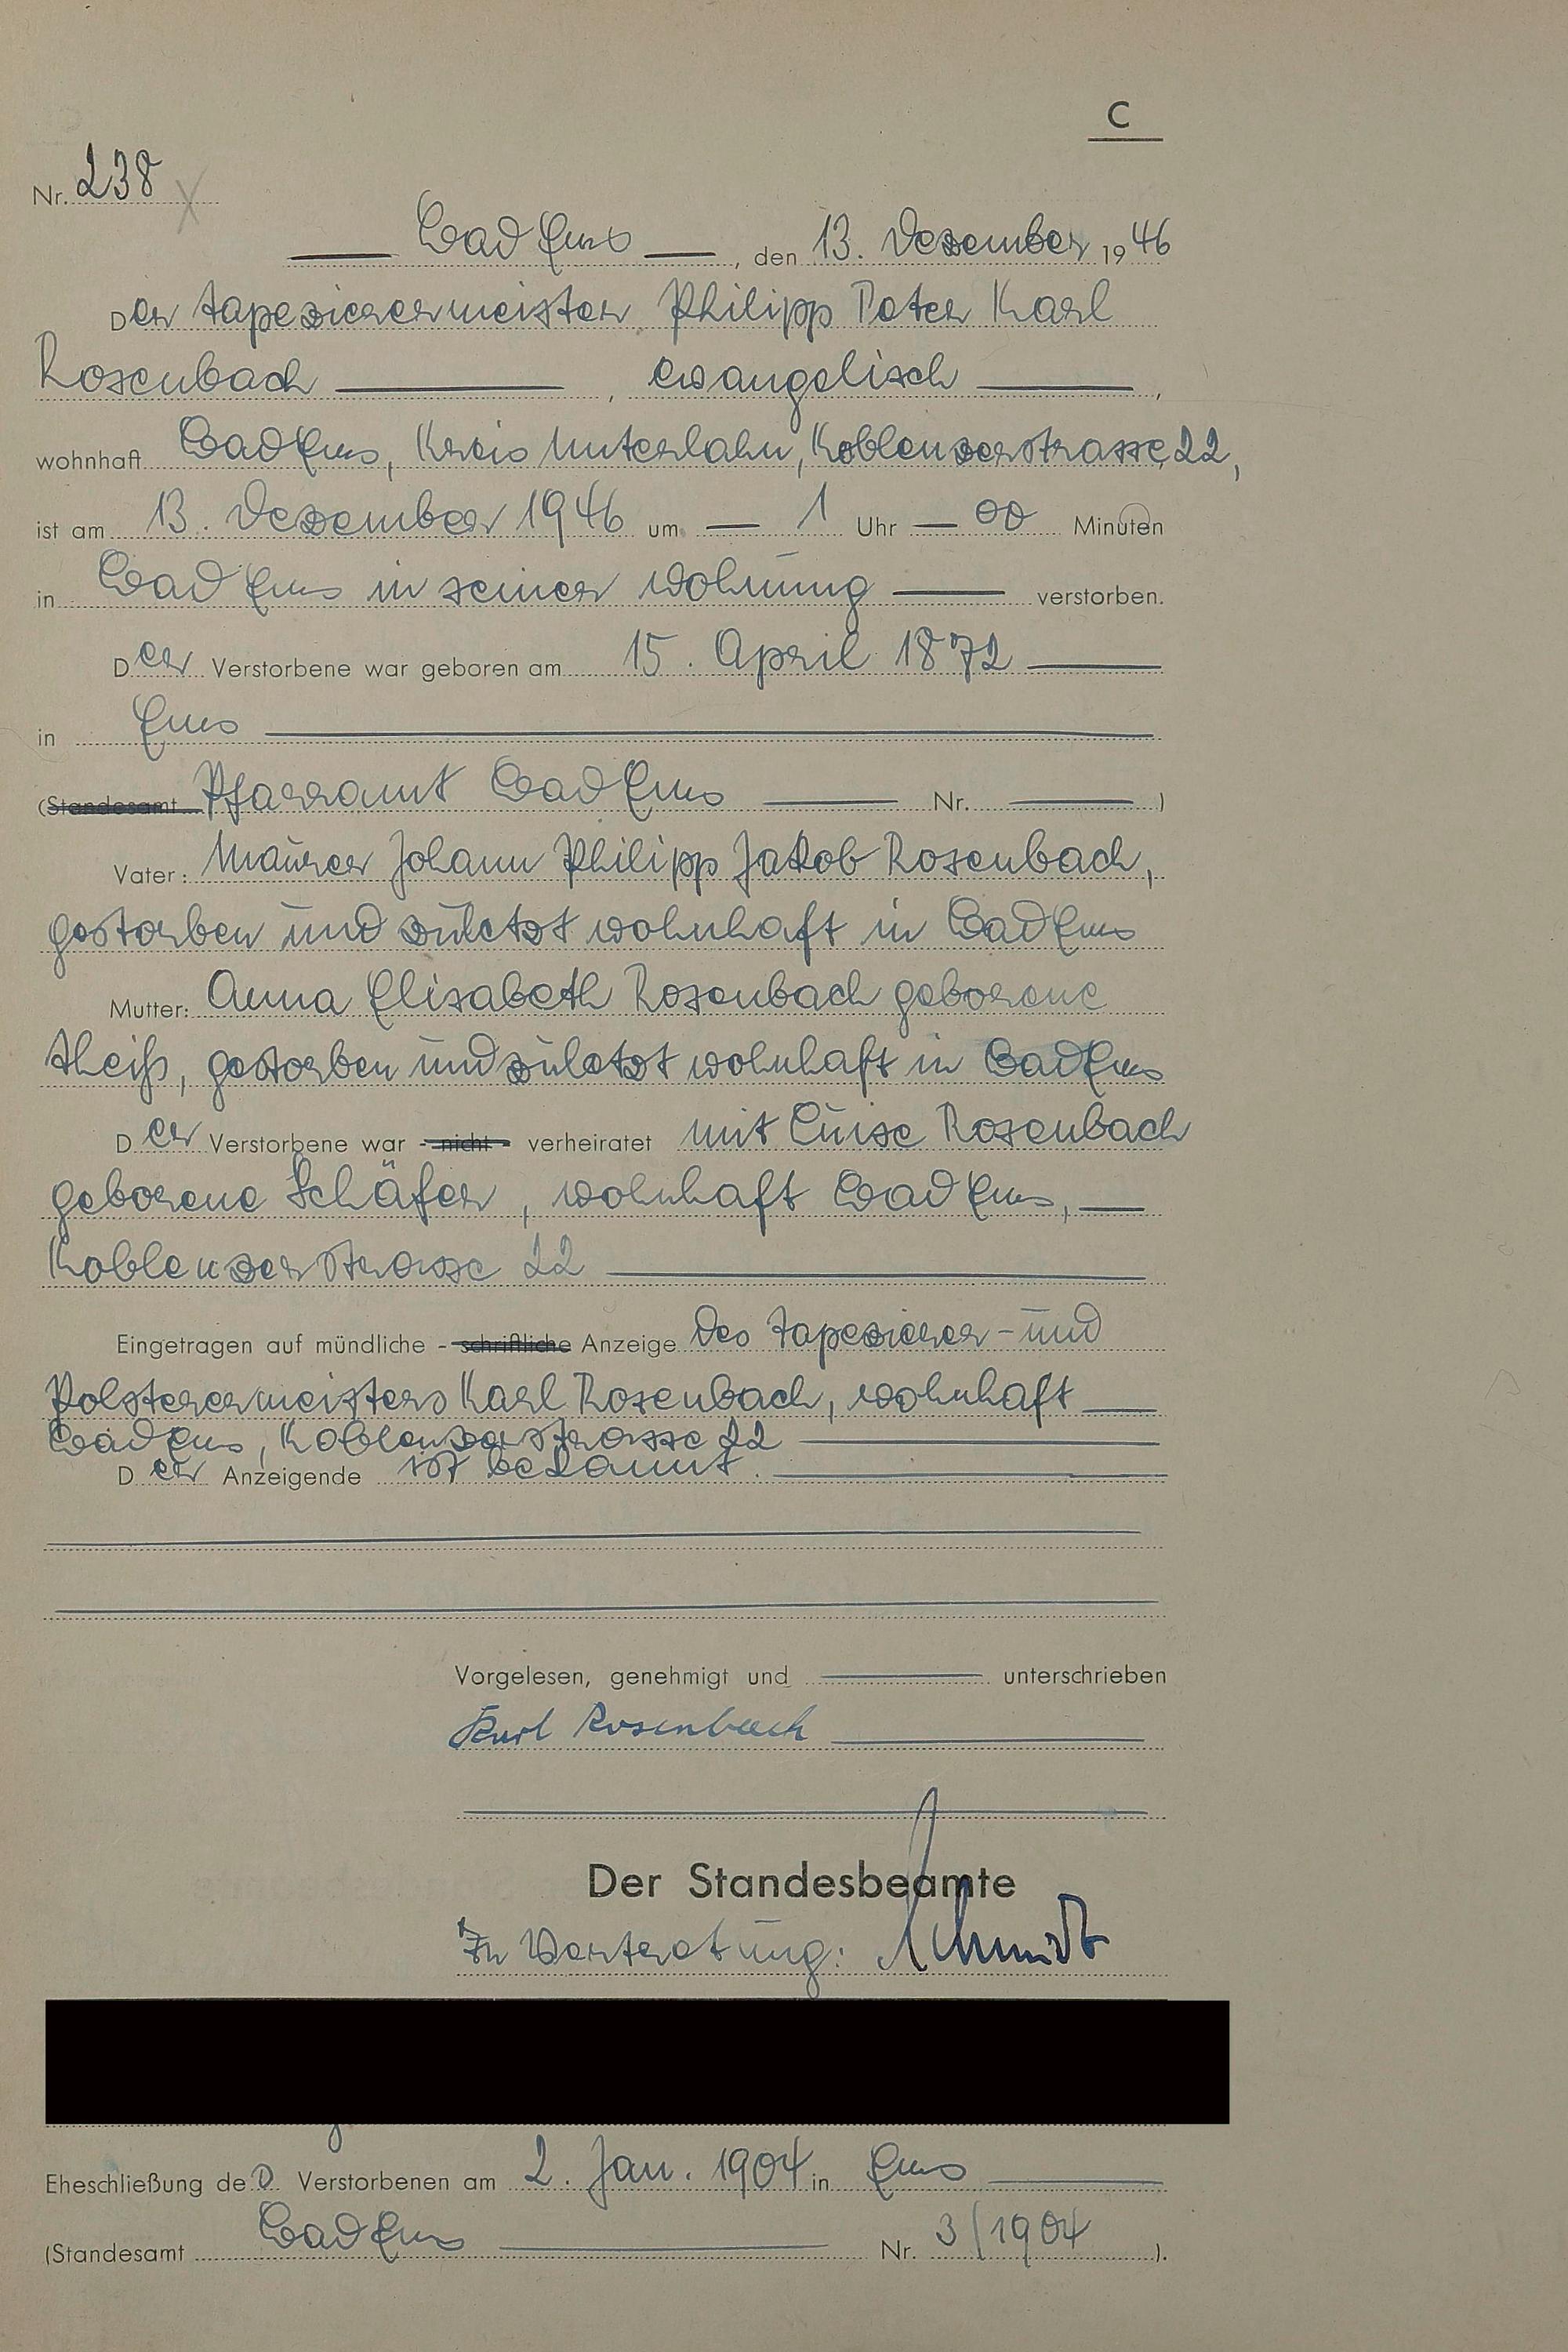 C
Nr. 238
Bad Ems, den 13. Dezember 1946
Der Tapezierermeister Philipp Peter Karl
Rosenbach, evangelisch,
wohnhaft Bad Ems, Kreis Unterlahn, Koblenzerstrasse 22,
ist am 13. Dezember 1946 um 1 Uhr 00 Minuten
in Bad Ems in seiner Wohnung verstorben.
Der Verstorbene war geboren am 15. April 1872
in Ems
(Standesamt Pfarramt Bad Ems Nr. )
Vater: Maurer Johann Philipp Jakob Rosenbach,
gestorben und zuletzt wohnhaft in Bad Ems
Mutter: Anna Elisabeth Rosenbach geborene
Theiß, gestorben und zuletzt wohnhaft in Bad Ems
Der Verstorbene war - nicht - verheiratet mit Luise Rosenbach
geborene Schäfer, wohnhaft Bad Ems,
Koblenzerstrasse 22
Eingetragen auf mündliche - schriftliche Anzeige des Tapezierer- und
Polsterermeisters Karl Rosenbach, wohnhaft
Bad Ems, Koblenzerstrasse 22
Der Anzeigende ist bekannt.
Vorgelesen, genehmigt und unterschrieben
Karl Rosenbach
Der Standesbeamte
In Vertretung: Schmidt
Eheschließung des Verstorbenen am 2. Jan. 1904 in Ems
(Standesamt Bad Ems Nr. 3/1904).